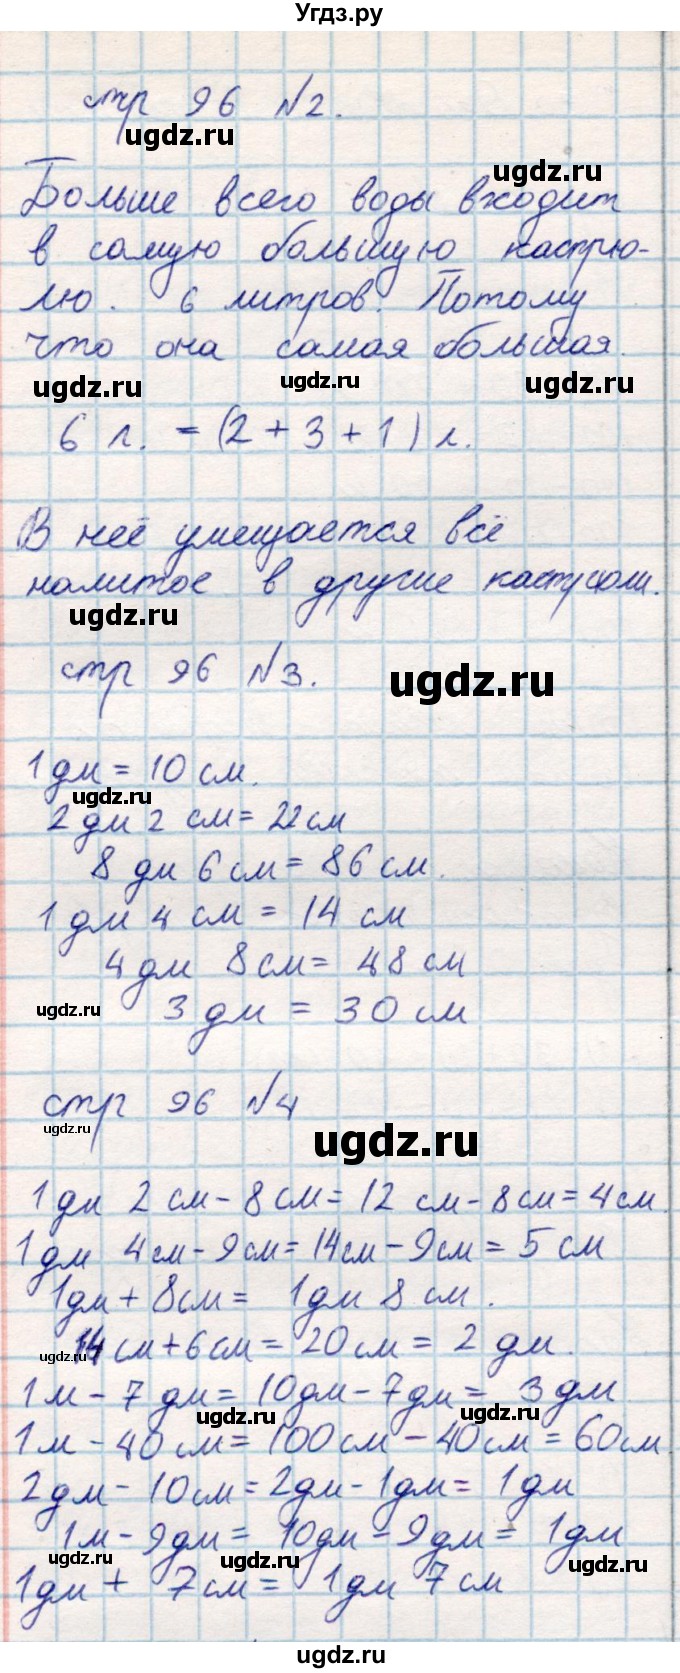 Угдз.ру
стр 96 №2.
ugdz.ru
ugdz.ru
Больше всего воды входит
в самую большую кастрю-
лю. 6 литров. Потому
что она самая большая.
ugdz.ru ugdz.ru ugdz.ru
6 л. = (2 + 3 + 1) л.
В неё умещается всё
налитое в другие кастрюли.
ugdz.ru
стр 96 №3.
ugdz.ru
1 дм = 10 см.
ugdz.ru
2 дм 2 см = 22 см
8 дм 6 см = 86 см.
1 дм 4 см = 14 см
4 дм 8 см = 48 см
ugdz.ru
3 дм = 30 см
стр 96 №4
ugdz.ru
ugdz.ru
1 дм 2 см - 8 см = 12 см - 8 см = 4 см.
1 дм 4 см - 9 см = 14 см - 9 см = 5 см
1 дм + 8 см = 1 дм 8 см.
14 см + 6 см = 20 см = 2 дм.
ugdz.ru
1 м - 7 дм = 10 дм - 7 дм = 3 дм
ugdz.ru ugdz.ru
1 м - 40 см = 100 см - 40 см = 60 см.
2 дм - 10 см = 2 дм - 1 дм = 1 дм
1 м - 9 дм = 10 дм - 9 дм = 1 дм
ugdz.ru ugdz.ru ugdz.ru
1 дм + 7 см = 1 дм 7 см
ugdz.ru